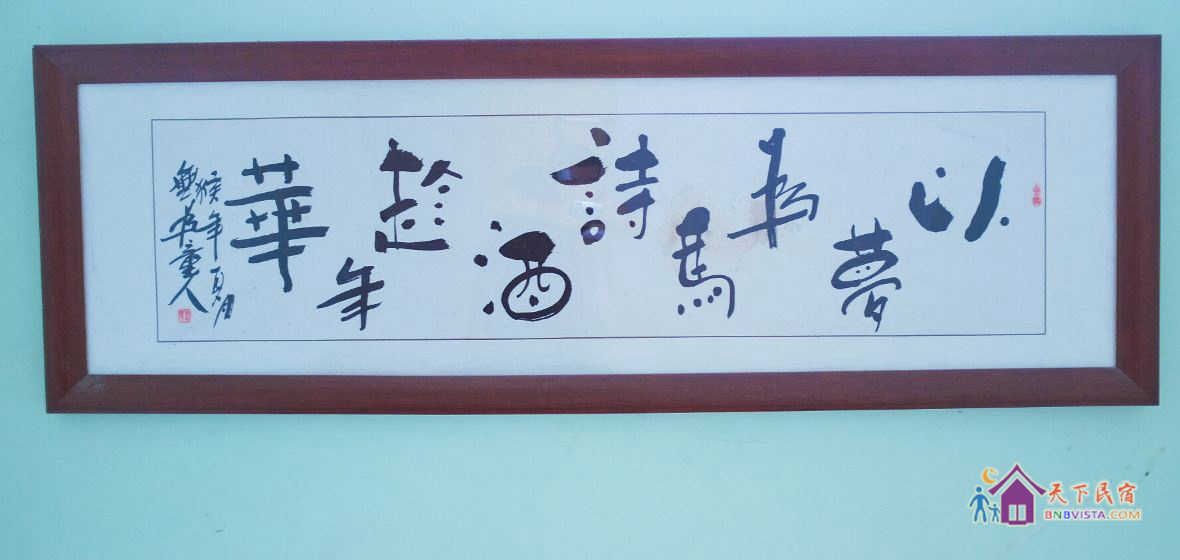 以夢為馬詩酒趁年華
猴年夏月
天下民宿
BNBVISTA.COM